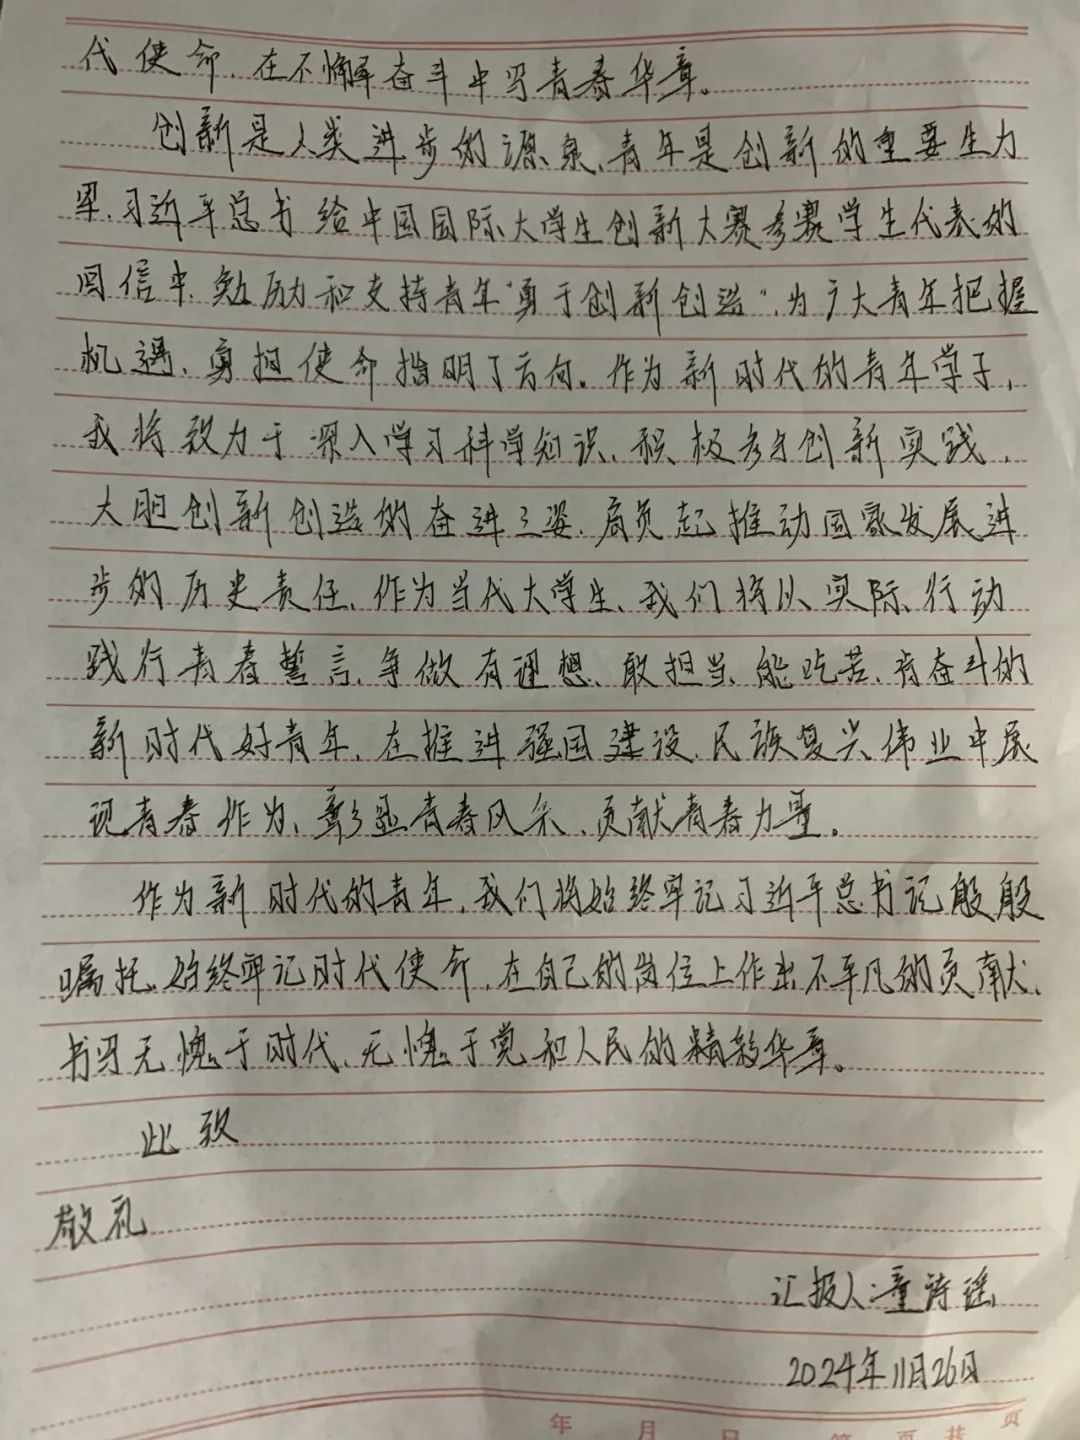 代使命，在不懈奋斗中写青春华章。
创新是人类进步的源泉，青年是创新的重要生力
军，习近平总书给中国国际大学生创新大赛参赛学生代表的
回信中，勉励和支持青年“勇于创新创造”，为广大青年把握
机遇，勇担使命指明了方向。作为新时代的青年学子，
我将致力于深入学习科学知识，积极参与创新实践，
大胆创新创造的奋进之姿，肩负起推动国家发展进
步的历史责任，作为当代大学生，我们将以实际行动
践行青春誓言，争做有理想、敢担当、能吃苦、肯奋斗的
新时代好青年，在推进强国建设、民族复兴伟业中展
现青春作为、彰显青春风采、贡献青春力量。
作为新时代的青年，我们将始终牢记习近平总书记殷殷
嘱托，始终牢记时代使命，在自己的岗位上作出不平凡的贡献，
书写无愧于时代、无愧于党和人民的精彩华章。
此致
敬礼
汇报人：童诗谣
2024年11月26日
年 月 日 第 页共 页